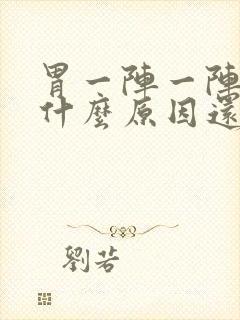 胃一陣一陣
什麼原因還
劉若